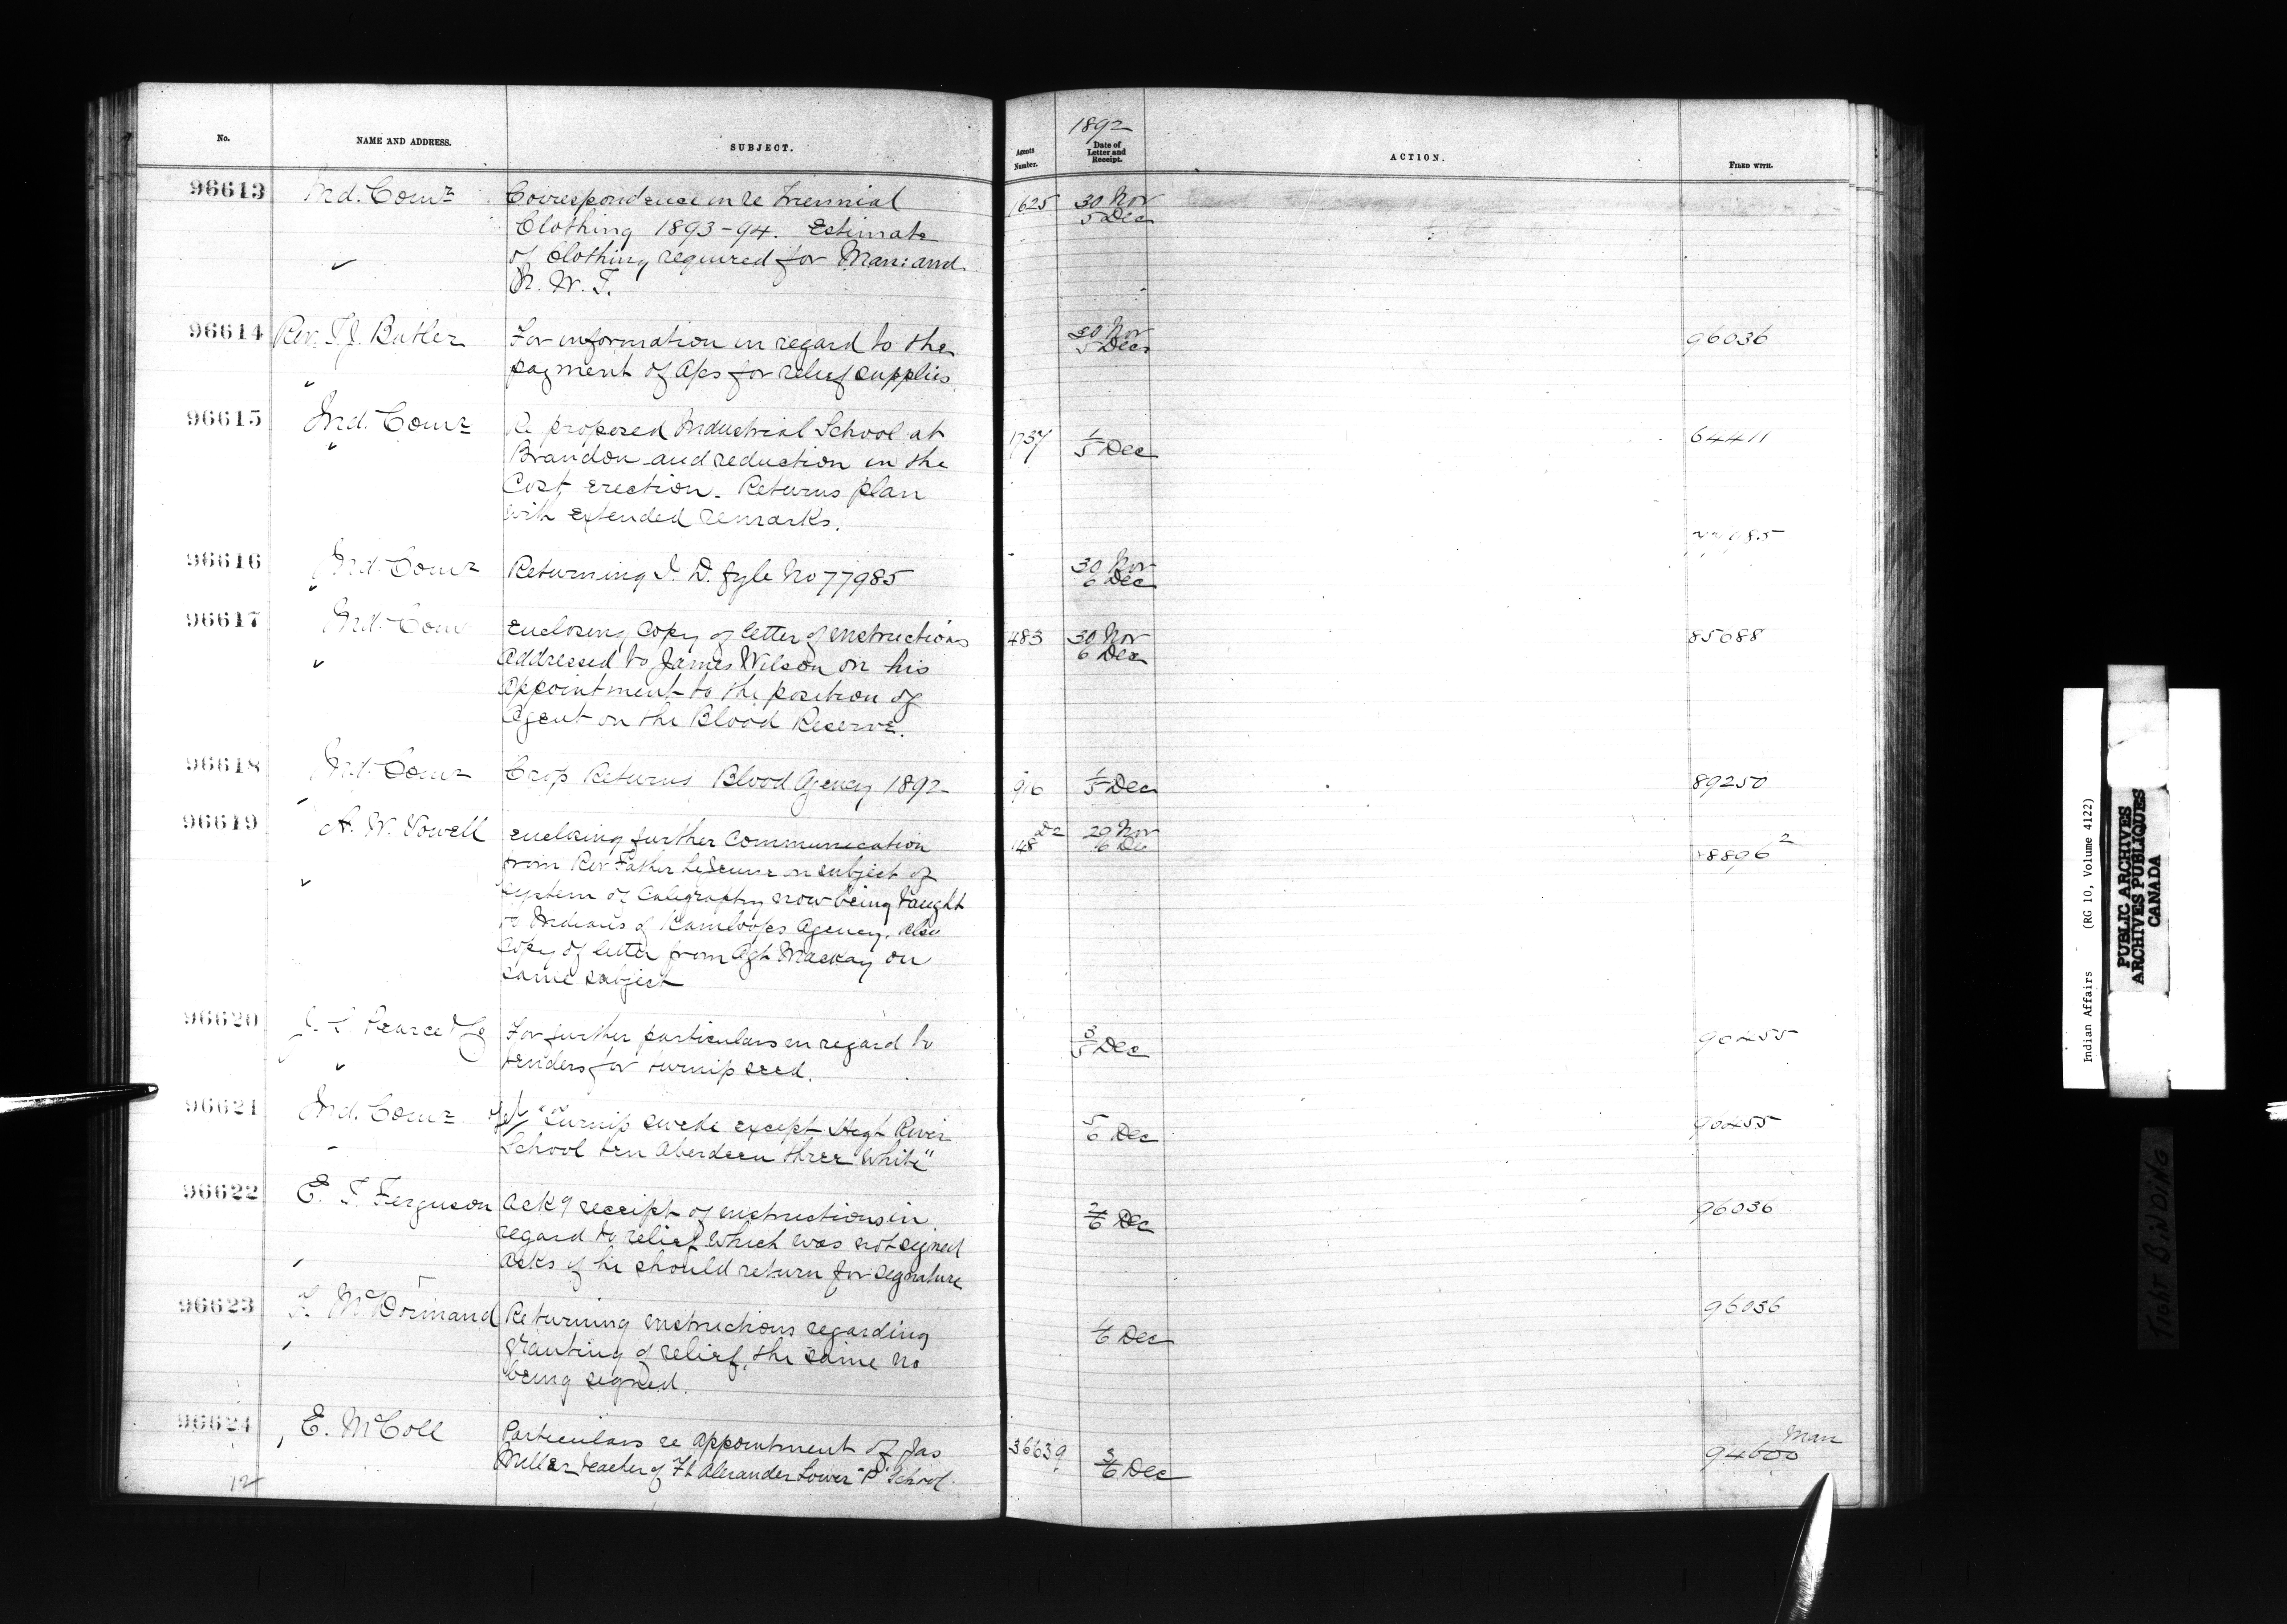 No. NAME AND ADDRESS. SUBJECT. Agents Number. 1892 Date of Letter and Receipt. ACTION. FILED WITH.
96613 Ind. Comr Correspondence in re Triennial 1625 30 Nov
Clothing 1893-94. Estimate 5 Dec
of Clothing required for Man: and
N. W. T.
96614 Rev. T. J. Butler For information in regard to the 30 Nov 96036
payment of a/cs for relief supplies 5 Dec
96615 Ind. Comr Re proposed Industrial School at 1737 1/5 Dec 64411
Brandon and reduction in the
Cost, erection. Returns plan
with extended remarks.
96616 Ind. Comr Returning I. D. fyle No 77985 30 Nov 77985
6 Dec
96617 Ind. Comr Enclosing Copy of letter of instructions 483 30 Nov 85688
addressed to James Wilson on his 6 Dec
appointment to the position of
Agent on the Blood Reserve.
96618 Ind. Comr Crop Returns Blood Agency 1892 916 1/5 Dec 89250
96619 A. W. Vowell enclosing further Communication 148 D2 29 Nov 8896 2
from Rev Father LeJeune on subject of 6 Dec
system of Caligraphy now being taught
to Indians of Kamloops Agency, also
Copy of letter from Agt Mackay on
same subject
96620 Pearce & Co For further particulars in regard to 3/5 Dec 90455
tenders for turnip seed.
96621 Ind. Comr Tel/ "Turnip swede except High River 5/6 Dec 90455
School ten Aberdeen three White"
96622 E. T. Ferguson Ackg receipt of instructions in 2/6 Dec 96036
regard to relief which was not signed
asks if he should return for signature
96623 F. McDormand Returning instructions regarding 96036
granting of relief, the same no 1/6 Dec
being signed.
96624 E. McColl Particulars re appointment of Jas 36639 3/6 Dec Man 94600
Miller teacher of Ft Alexander Lower "P" School
12
Indian Affairs (RG 10, Volume 4122)
PUBLIC ARCHIVES
ARCHIVES PUBLIQUES
CANADA
TIGHT BINDING